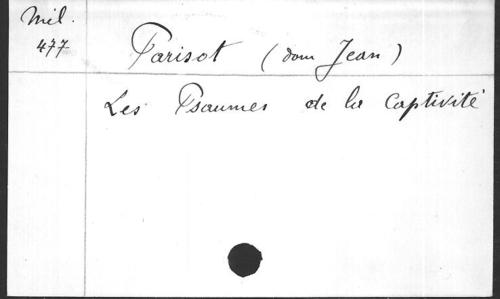 Mél.
477
Parisot (dom Jean)
Les Psaumes de la Captivité